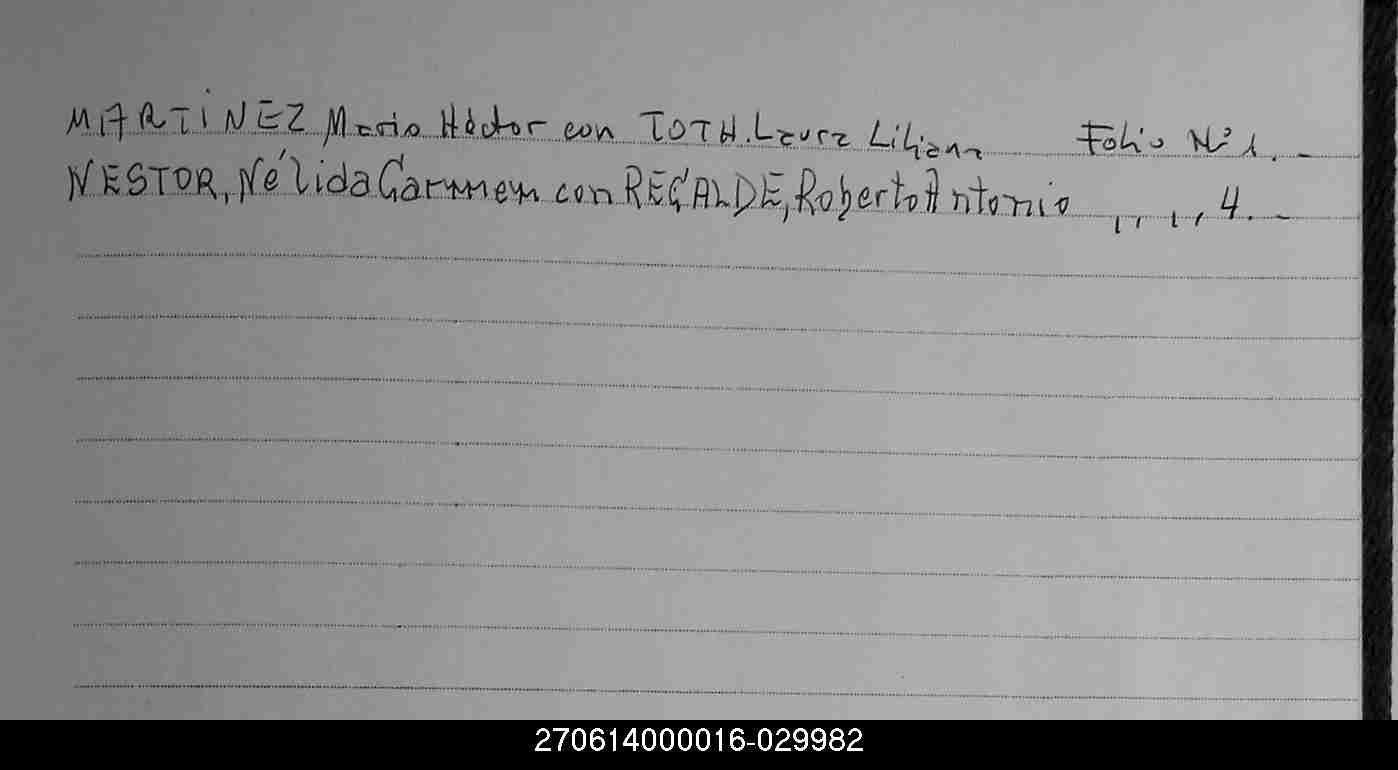 MARTINEZ Mario Héctor con TOTH. Laura Liliana Folio Nº 1. -
NESTOR, Nélida Carmen con RECALDE, Roberto Antonio , , , , 4. -
270614000016-029982